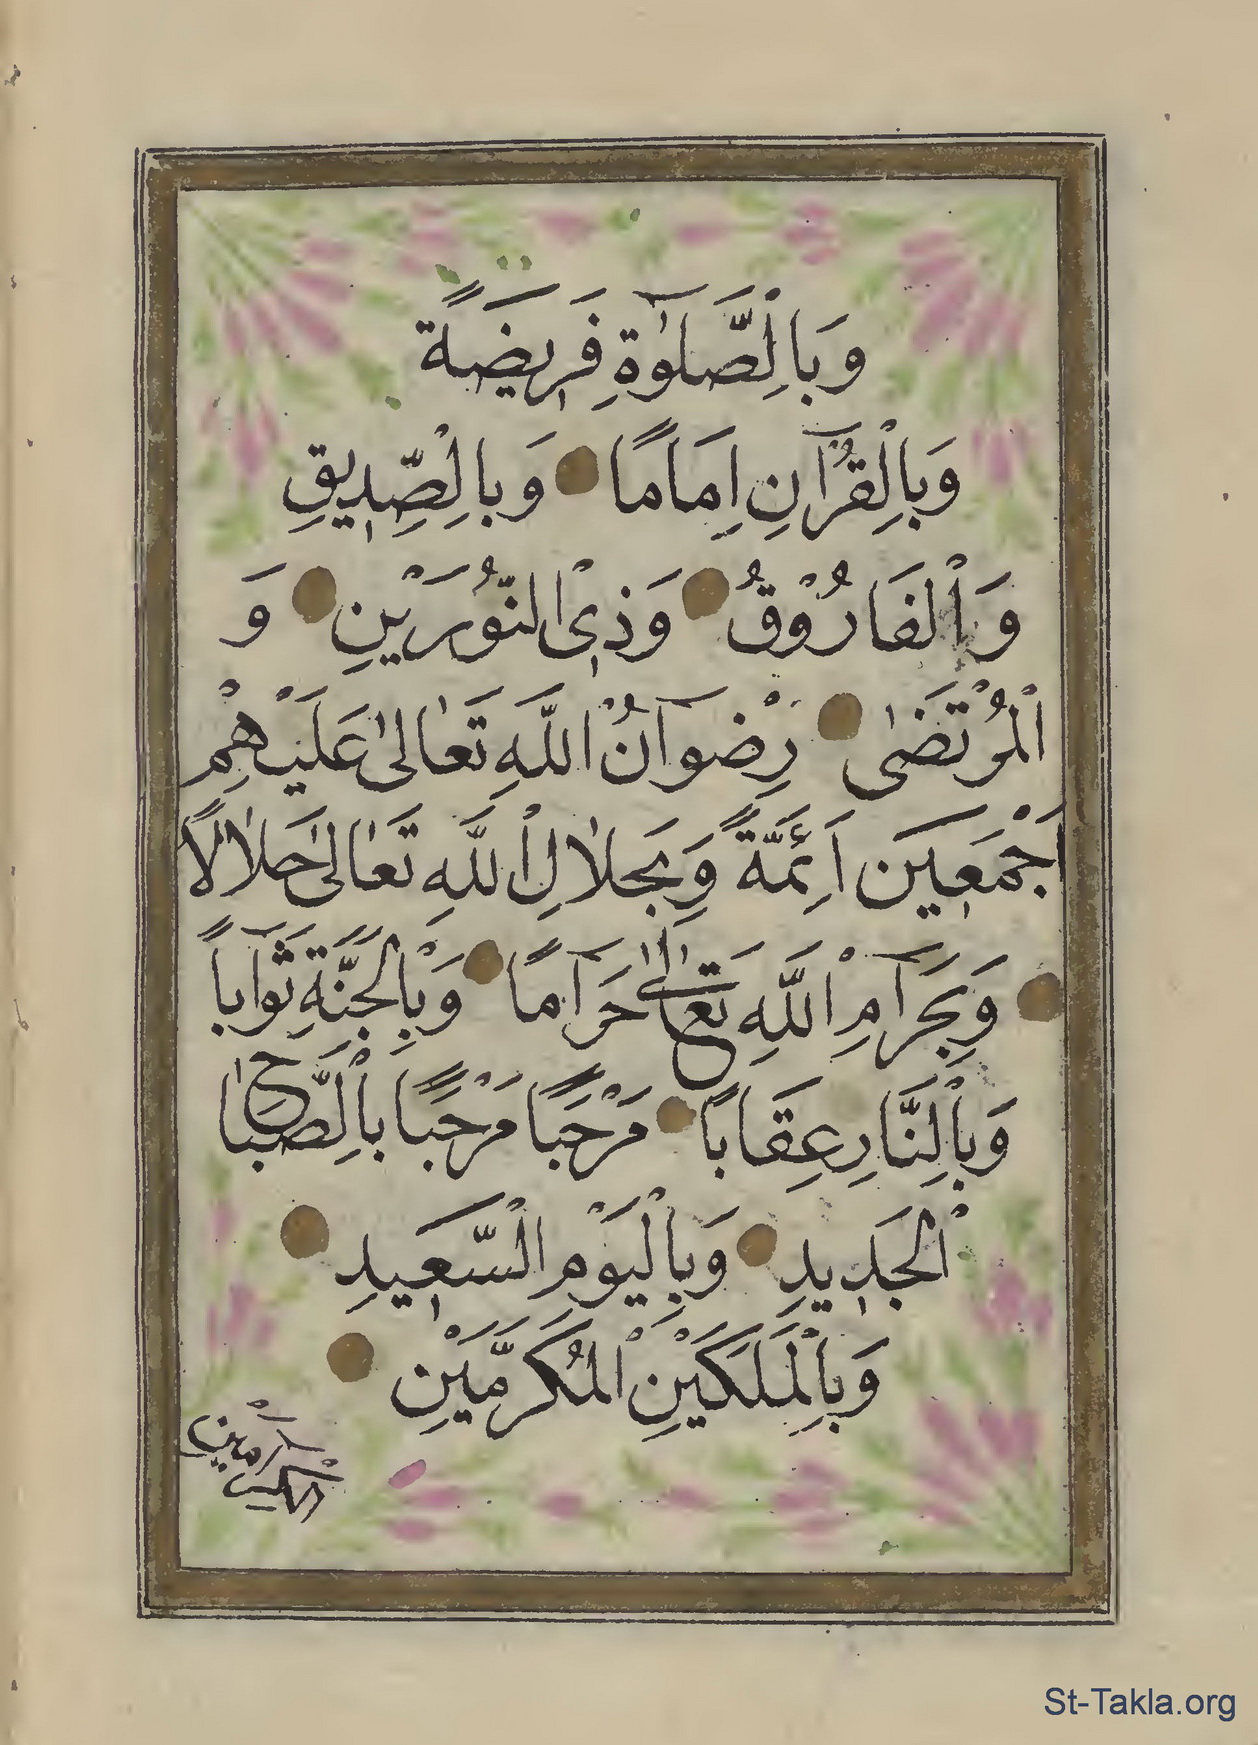 وَبِالصَّلٰوةِ فَرِيضَةً
وَبِالْقُرْآنِ اِمَامًا وَبِالصِّدِيقِ
وَالْفَارُوْقُ وَذِى النُّورَيْنِ وَ
الْمُرْتَضٰى رِضْوَآنُ اللَّهِ تَعَالىٰ عَلَيْهِمْ
اَجْمَعِينَ اَئِمَّةً وَبِحَلَالِ اللَّهِ تَعَالىٰ حَلَالًا
وَبِحَرَآمِ اللَّهِ تَعَالىٰ حَرَآمًا وَبِالْجَنَّةِ ثَوَآباً
وَبِالنَّارِ عِقَاباً مَرْحَبًا مَرْحَبًا بِالصَّبَاحِ
الْجَدِيدِ وَبِالْيَوْمِ السَّعِيدِ
وَبِالْمَلَكَيْنِ الْمُكَرَّمَيْنِ
الْكَاتِبَيْنِ
St-Takla.org